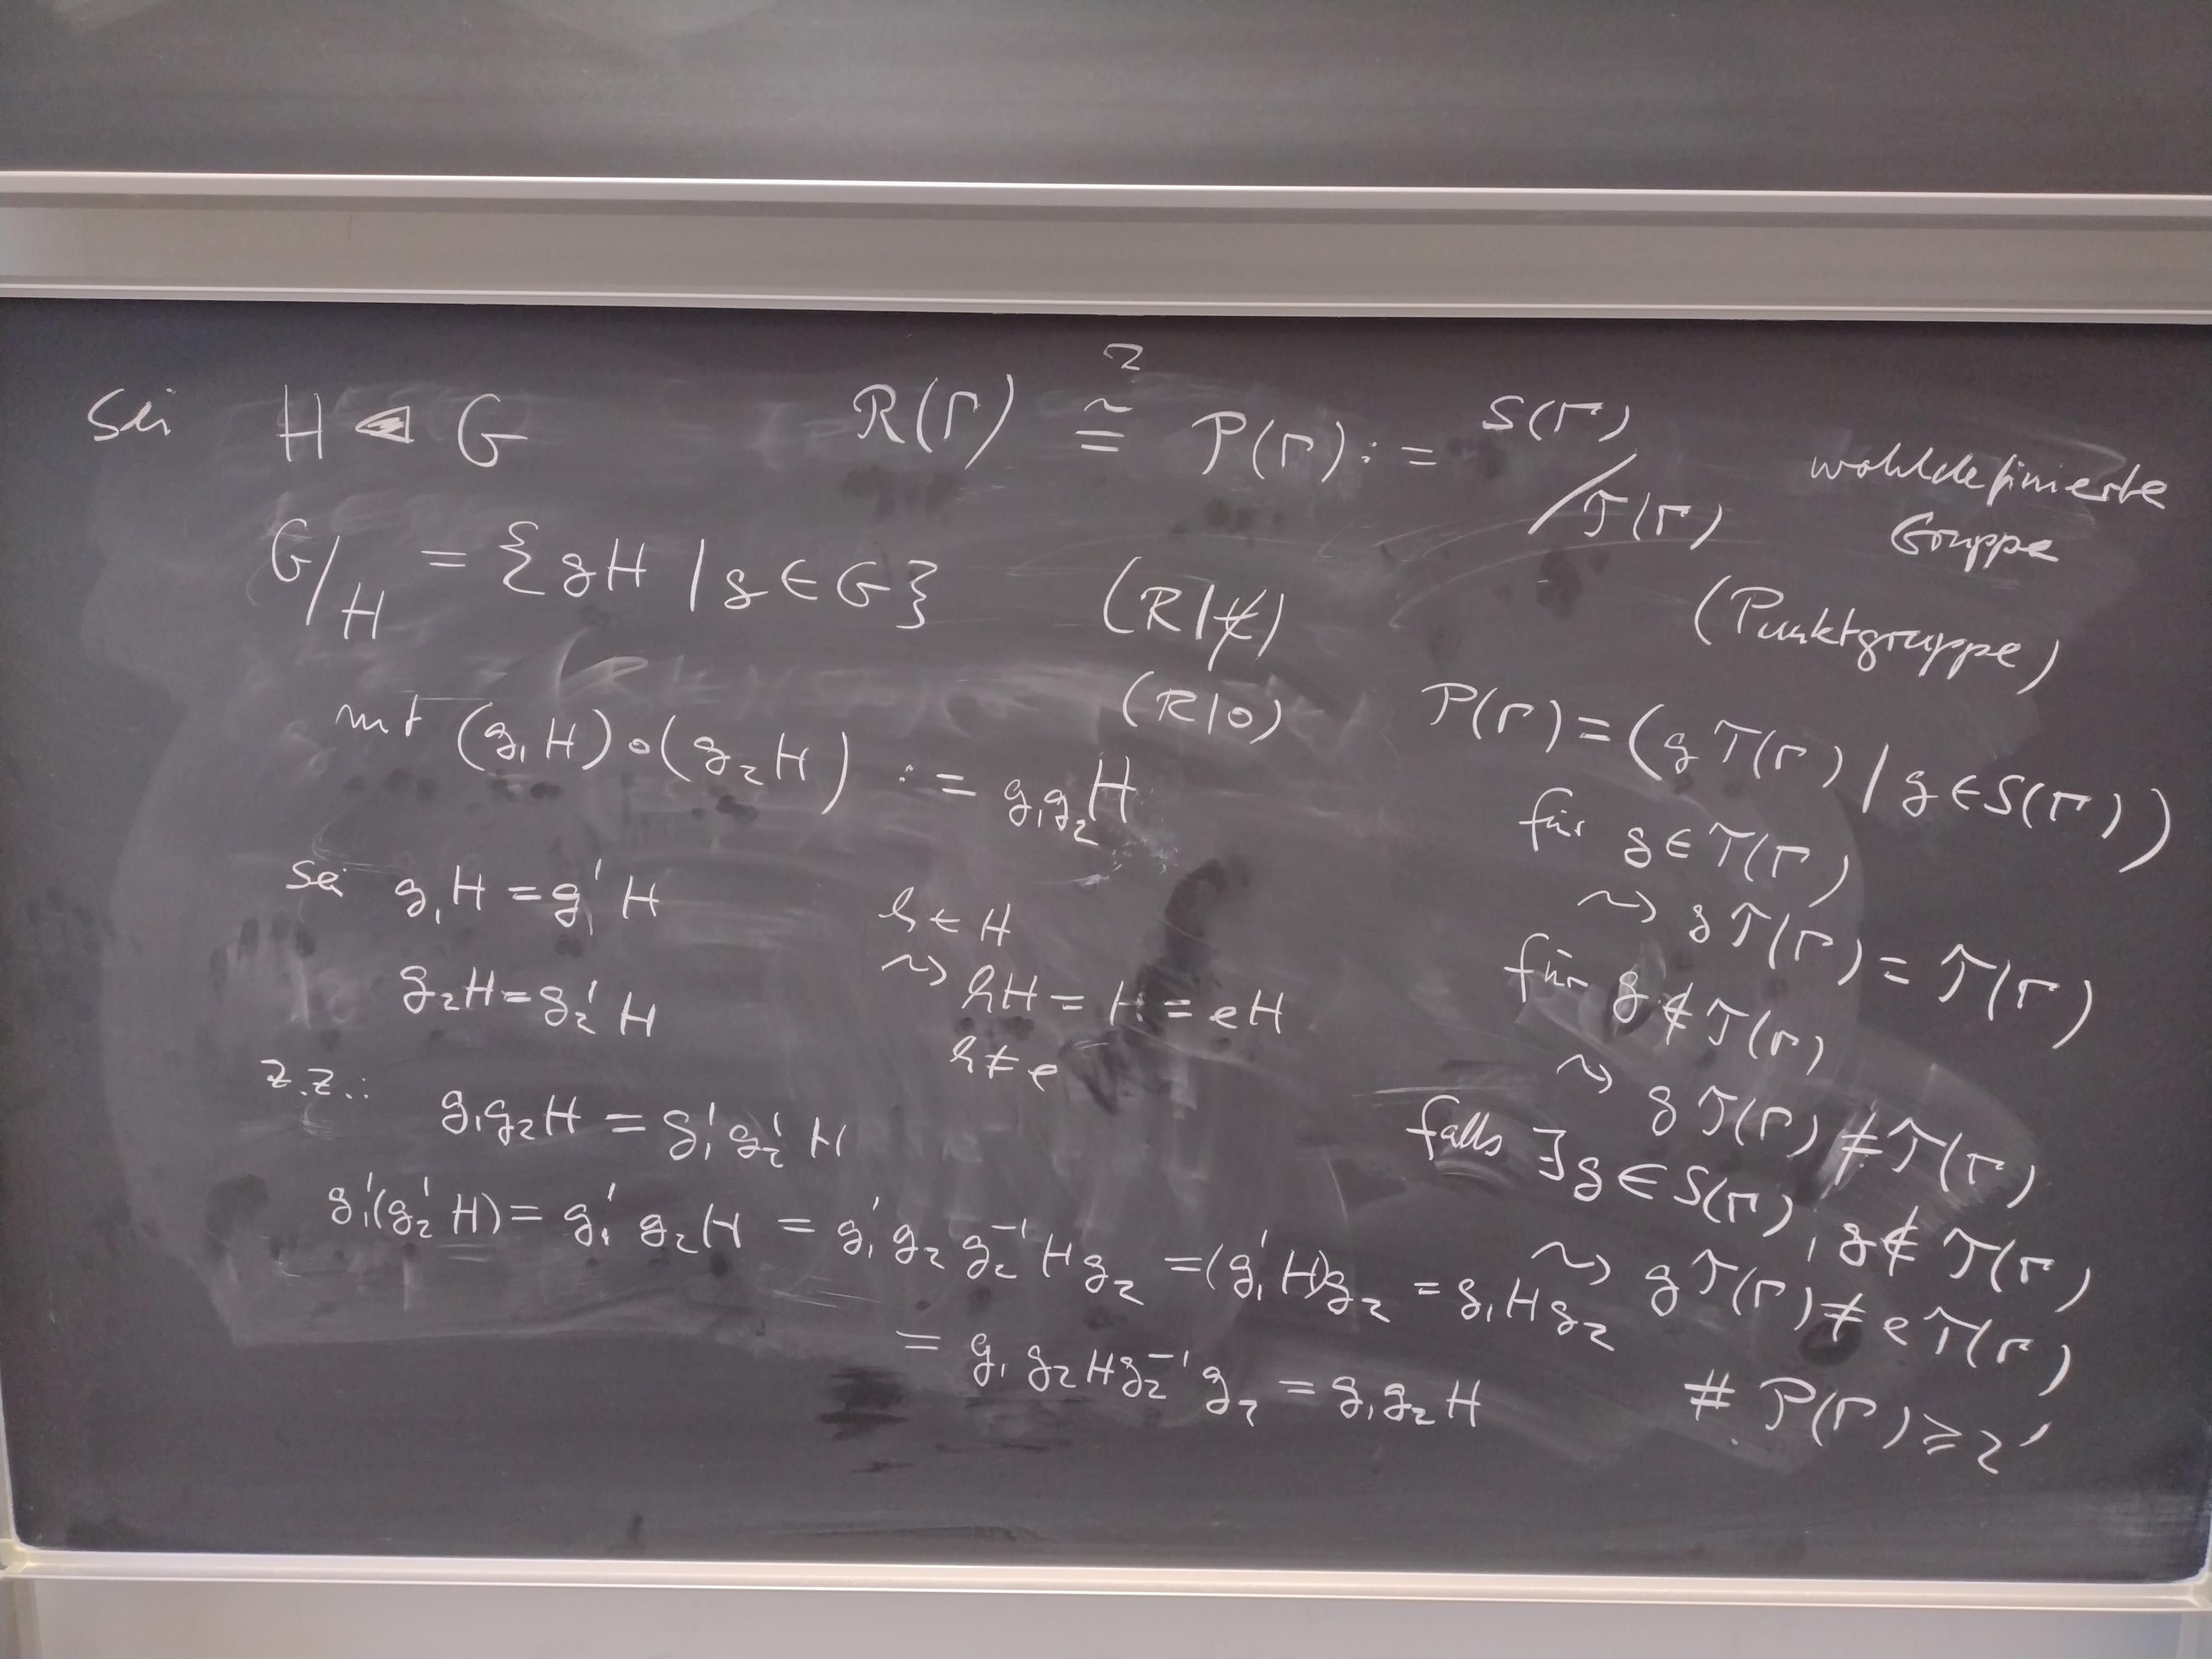 Sei H ◁ G
G/H = {gH | g ∈ G}
mit (g₁H)∘(g₂H) := g₁g₂H
Sei g₁H = g₁'H
g₂H = g₂'H
z.z.:
g₁g₂H = g₁'g₂'H
g₁'(g₂'H) = g₁'g₂H = g₁'g₂g₂⁻¹Hg₂ = (g₁'H)g₂ = g₁Hg₂
= g₁g₂Hg₂⁻¹g₂ = g₁g₂H
h ∈ H
⇝ hH = H = eH
h ≠ e
2
R(Γ) ≅ P(Γ) := S(Γ)/T(Γ)
(R|0)
wohldefinierte
Gruppe
(Punktgruppe)
P(Γ) = (gT(Γ) | g ∈ S(Γ))
für g ∈ T(Γ)
⇝ gT(Γ) = T(Γ)
für g ∉ T(Γ)
⇝ gT(Γ) ≠ T(Γ)
falls ∃g ∈ S(Γ), g ∉ T(Γ)
⇝ gT(Γ) ≠ eT(Γ)
# P(Γ) ≥ 2'